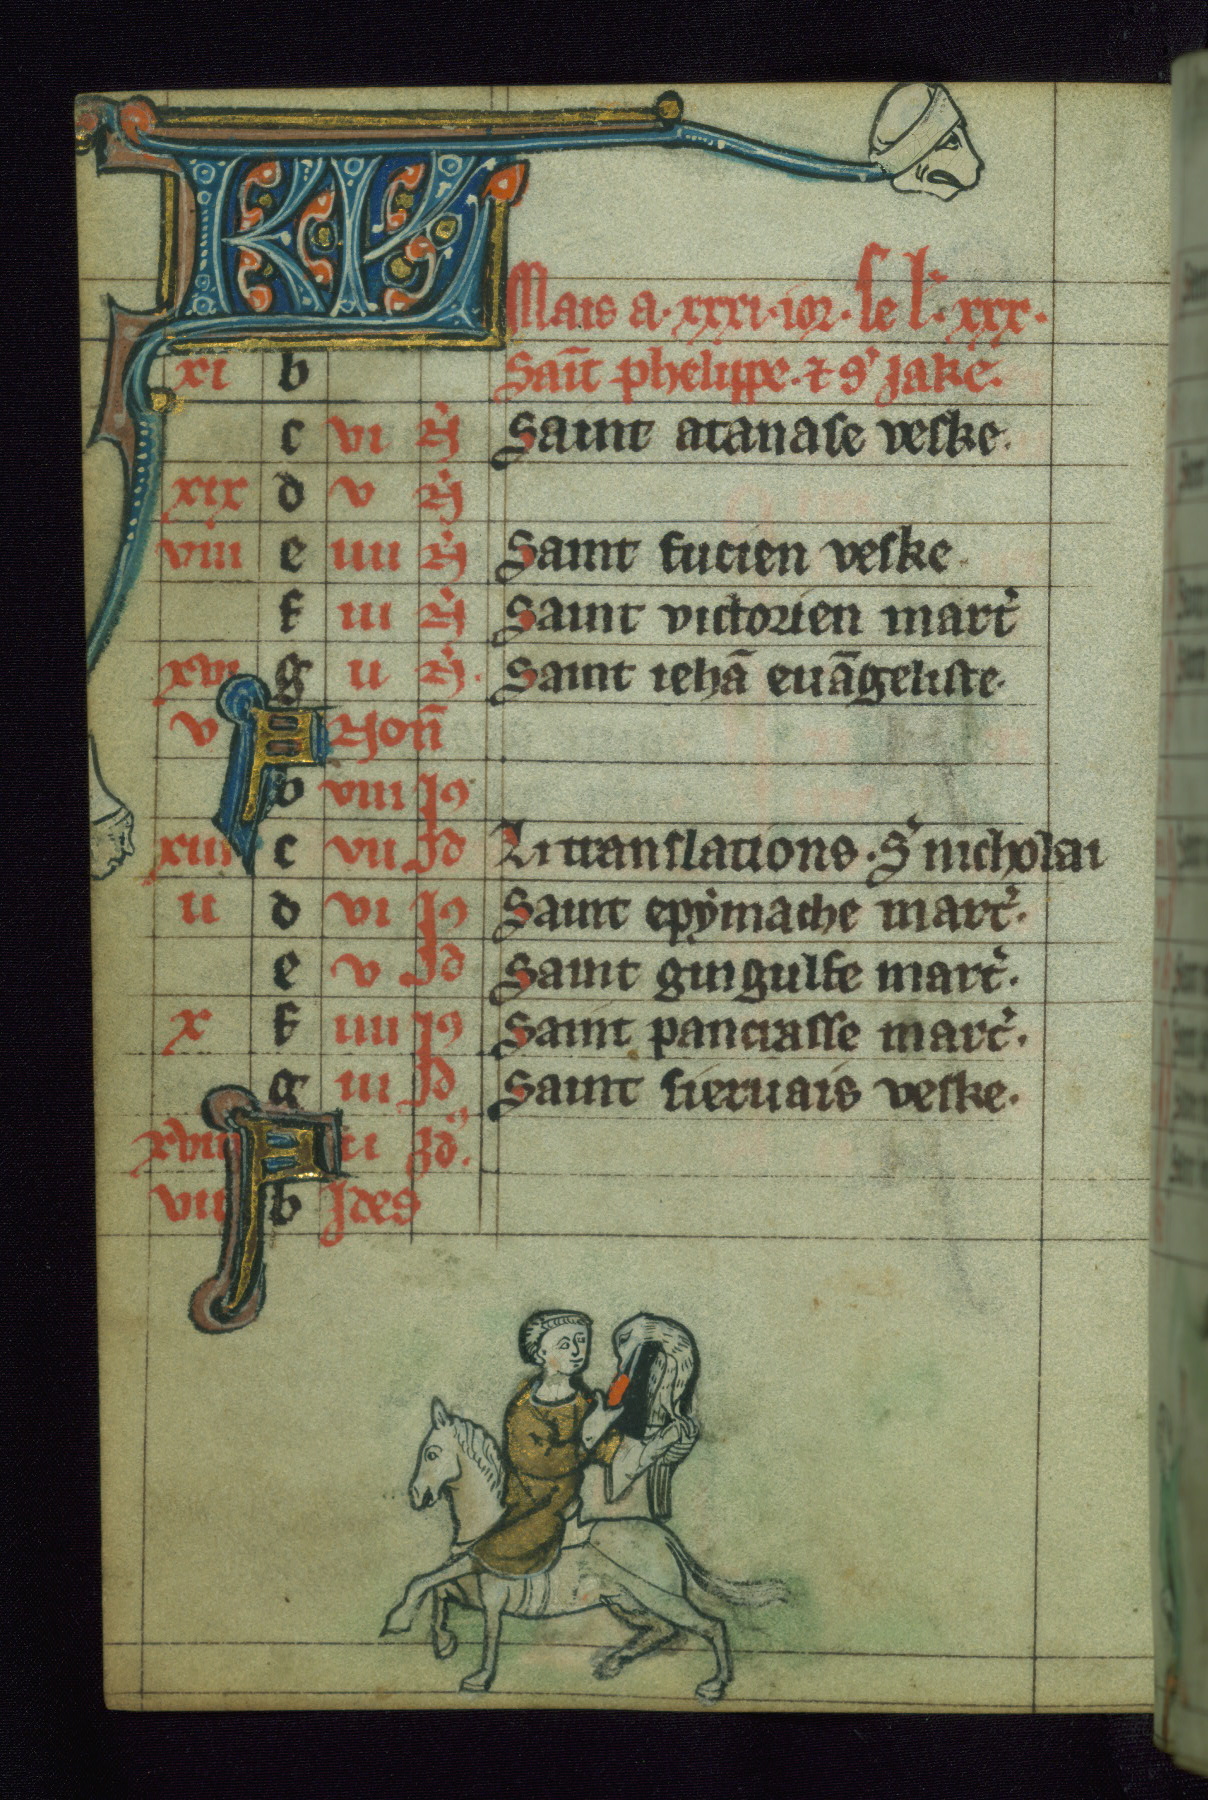 KL Mais a · xxxi · ior · se l̄ · xxx ·
xi b Saīt phelippe · ⁊ s' Jake ·
c vi Ṅ Saint atanase veske ·
xix d v Ṅ
viii e iiii Ṅ Saint fucien veske ·
f iii Ṅ Saint victorien mart̓
xvi g ii Ṅ · Saint iehā euāgeliste ·
v A Non̄
b viii Id
xiii c vii Id Li translations · S' nicholai
ii d vi Id Saint epẏmache mart̓ ·
e v Id Saint gingulfe mart̓ ·
x f iiii Id Saint pancrasse mart̓ ·
g iii Id Saint sieruais veske ·
xviii A ii Id ·
vii b Ides